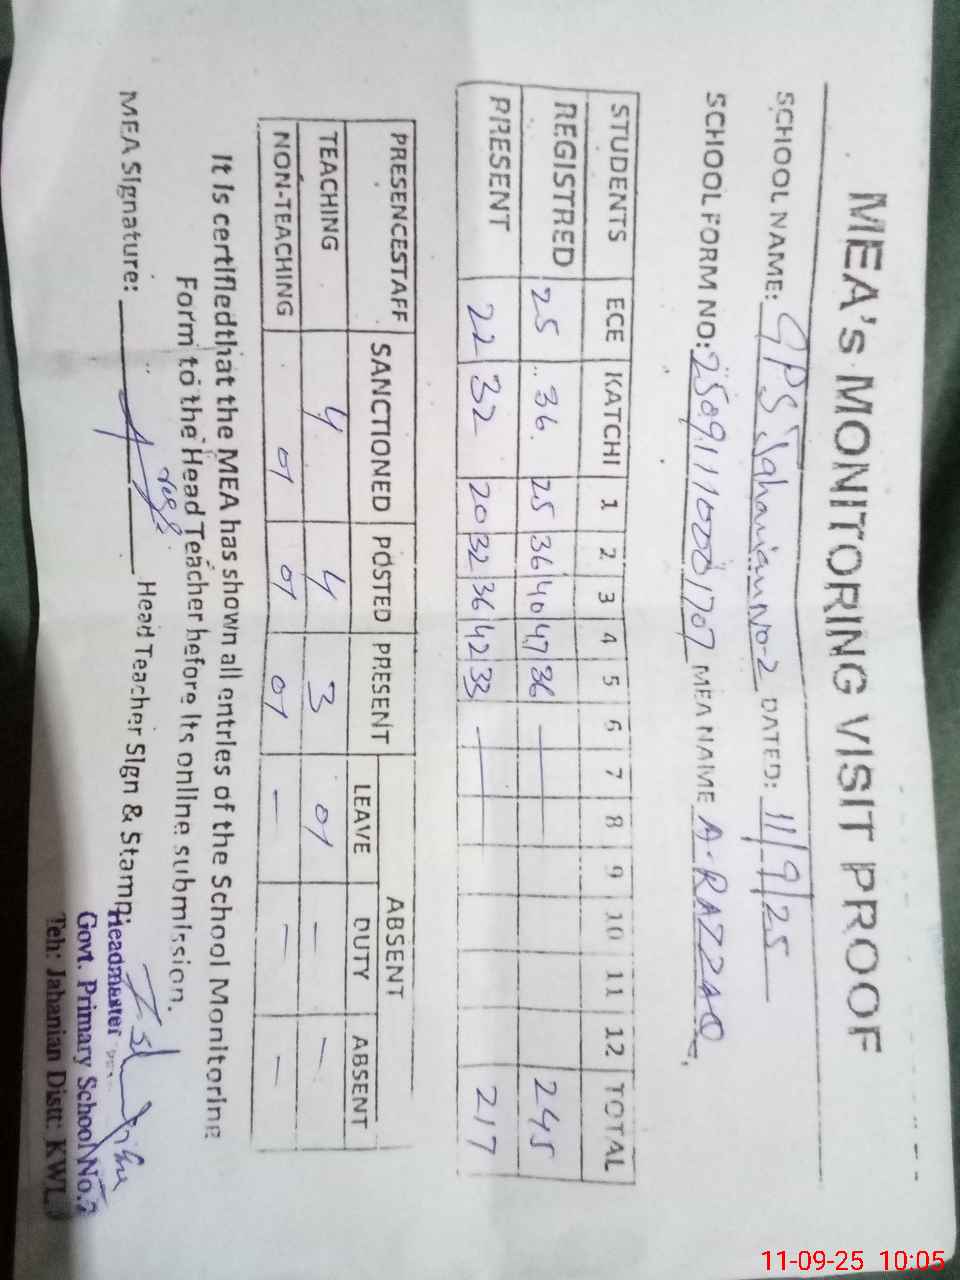 MEA's MONITORING VISIT PROOF
SCHOOL NAME: GPS Jahanian NO-2 DATED: 11/9/25
SCHOOL FORM NO: MEA NAME A.RAZZAQ
STUDENTS ECE KATCHI 1 2 3 4 5 6 7 8 9 10 11 12 TOTAL
REGISTRED 25 36 25 36 40 47 36 — 245
PRESENT 22 32 20 32 36 42 33 — 217
PRESENCESTAFF SANCTIONED POSTED PRESENT ABSENT
LEAVE DUTY ABSENT
TEACHING 4 4 3 01 — —
NON-TEACHING 01 01 01 — — —
It is certifiedthat the MEA has shown all entries of the School Monitoring
Form to the Head Teacher before its online submission.
MEA Signature: Head Teacher Sign & Stamp:
Headmaster
Govt. Primary School No.2
Teh: Jahanian Distt: KWL
11-09-25 10:05